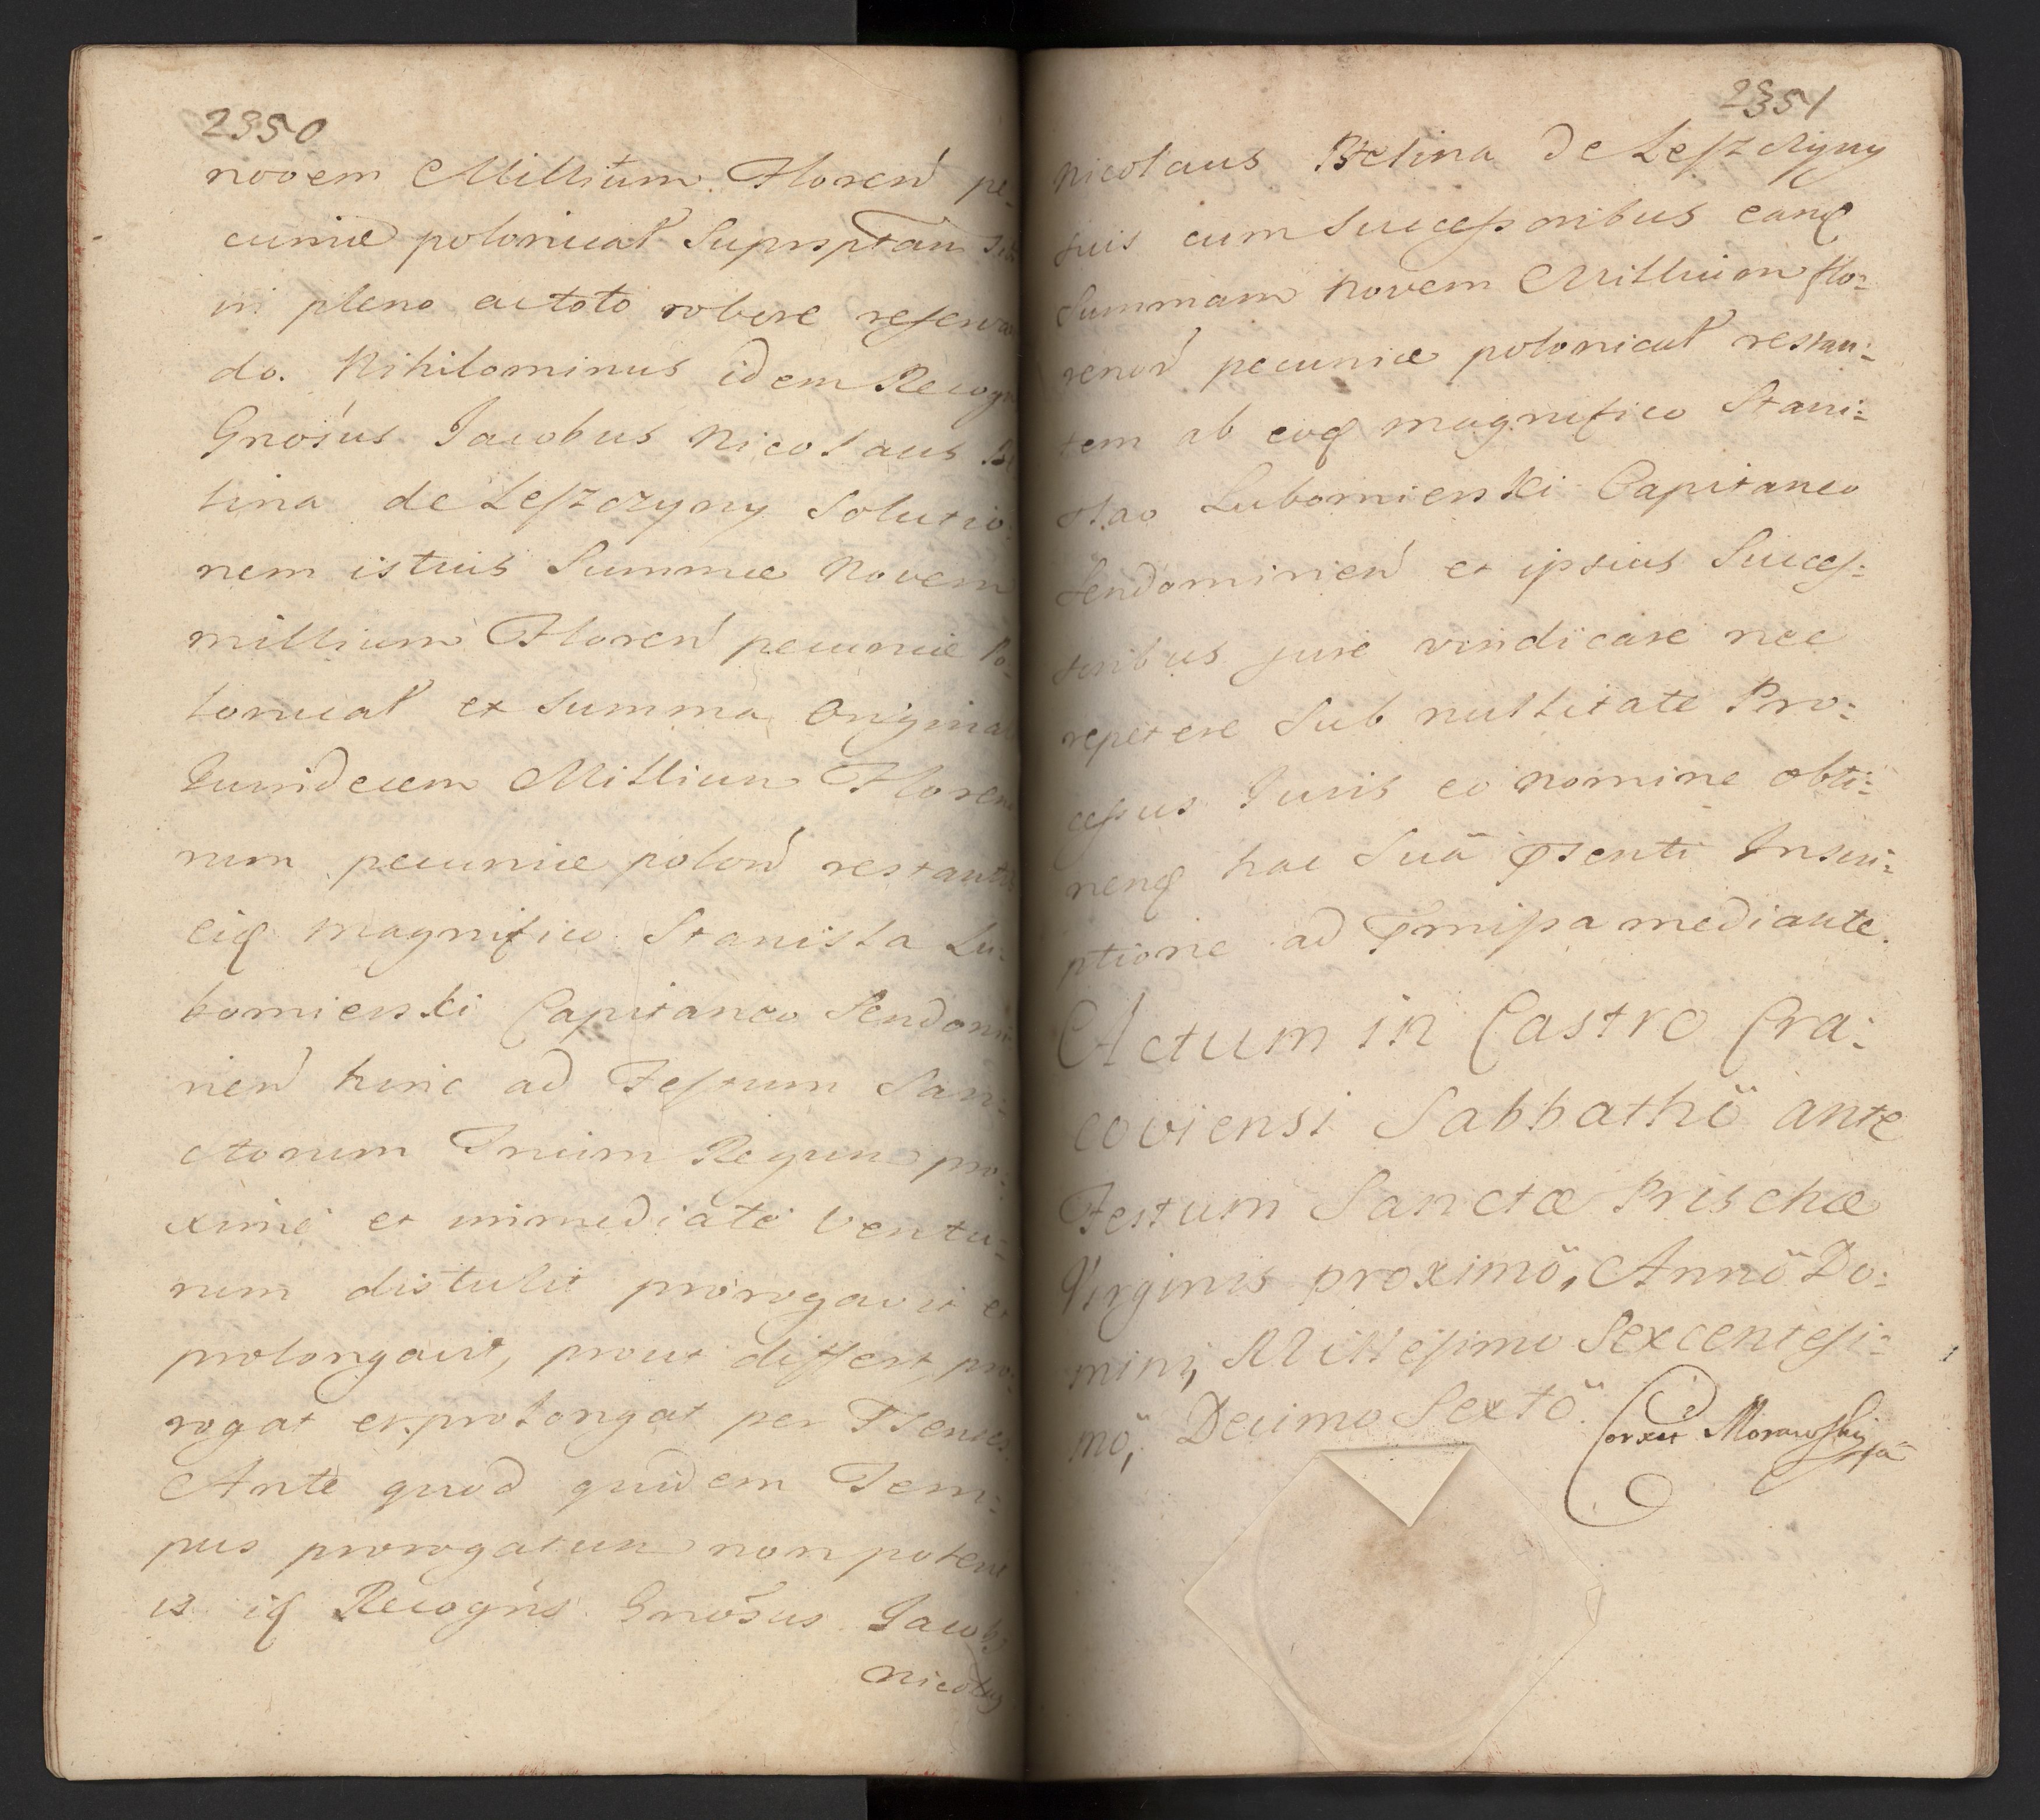 2350
novem Millium Floren̄ pe-
cuniæ polonical Suprsptam
in pleno ac toto robore reserva
do. Nihilominus idem Recogn
Gnosus Jacobus Nicolaus Be
lina de Leszczyny Solutio
nem istius Summæ Novem
millium Floren̄ pecuniæ Po-
lonical ex Summa Original
Quindecem Millium Floreno
rum pecuniæ polon̄ restantis
eiq magnifico Stanisla Lu-
bomierski Capitaneo Sendomi
rien̄ hinc ad Festum San-
ctorum Trium Regum pro-
xime et immediate Ventu-
rum distulit prorogavit et
prolongavit, prout differt, pro-
rogat et prolongat per Psentes
Ante quod quidem Tem-
pus prorogatum non poterit
is iq Recogns Gnosus Jacob
Nicolaus
2351
Nicolaus Belina de Leszczyny
suis cum Successoribus eanq
Summam Novem Millium flo-
renor pecuniæ polonical restan-
tem ab eoq magnifico Stani-
slao Lubomierski Capitaneo
Sendomirien̄ et ipsius Succes-
soribus jure vindicare nec
repetere Sub nullitate Pro-
cessus Juris eo nomine obti-
nenq hac Suā Psenti Inscri-
ptione ad Pmissa mediante.
Actum in Castro Cra-
coviensi Sabbathō ante
Festum Sanctæ Prischæ
Virginis proximō, Annō Do-
mini, Millesimo Sexcentesi-
mō, Decimo Sextō.
Correxit Morawski